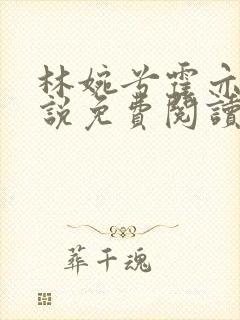 林婉兮霍亦
說免費閱讀
葬千魂